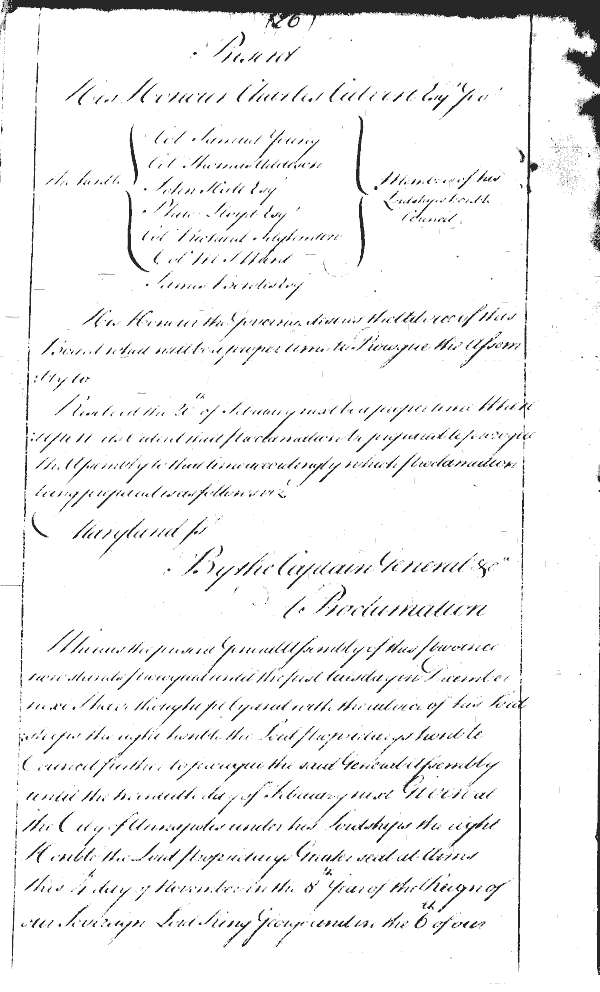 (26)
Present
His Honour Charles Calvert Esqr Govr
Col Samuel Young
Col Thomas Addison
The honble John Hall Esqr Members of his
Phile Lloyd Esqr Lordships honble
Col Richard Tilghman Council
Col M T Ward
James Bowles Esq
His Honour the Governor desires the Advice of this
Board what will be a proper time to Prorogue this Assem
:bly to
Resolved the 20th of February next be a proper time Where
:upon its Ordered that Proclamation be prepared to prorogue
the Assembly to that time accordingly which Proclamation
being prepared is as follows viz
Maryland ss
By the Captain General &ca
A Proclamation
Whereas the present General Assembly of this Province
now stands prorogued until the first Tuesday in December
next I have thought fit by and with the advice of his Lord
:ships the right honble the Lord Proprietarys honble
Council further to prorogue the said General Assembly
until the twentieth day of February next Given at
the City of Annapolis under his Lordships the right
Honble the Lord Proprietarys Greater seal at Arms
this day of November in the 8th Year of the Reign of
our Sovereign Lord King George and in the 6th of our